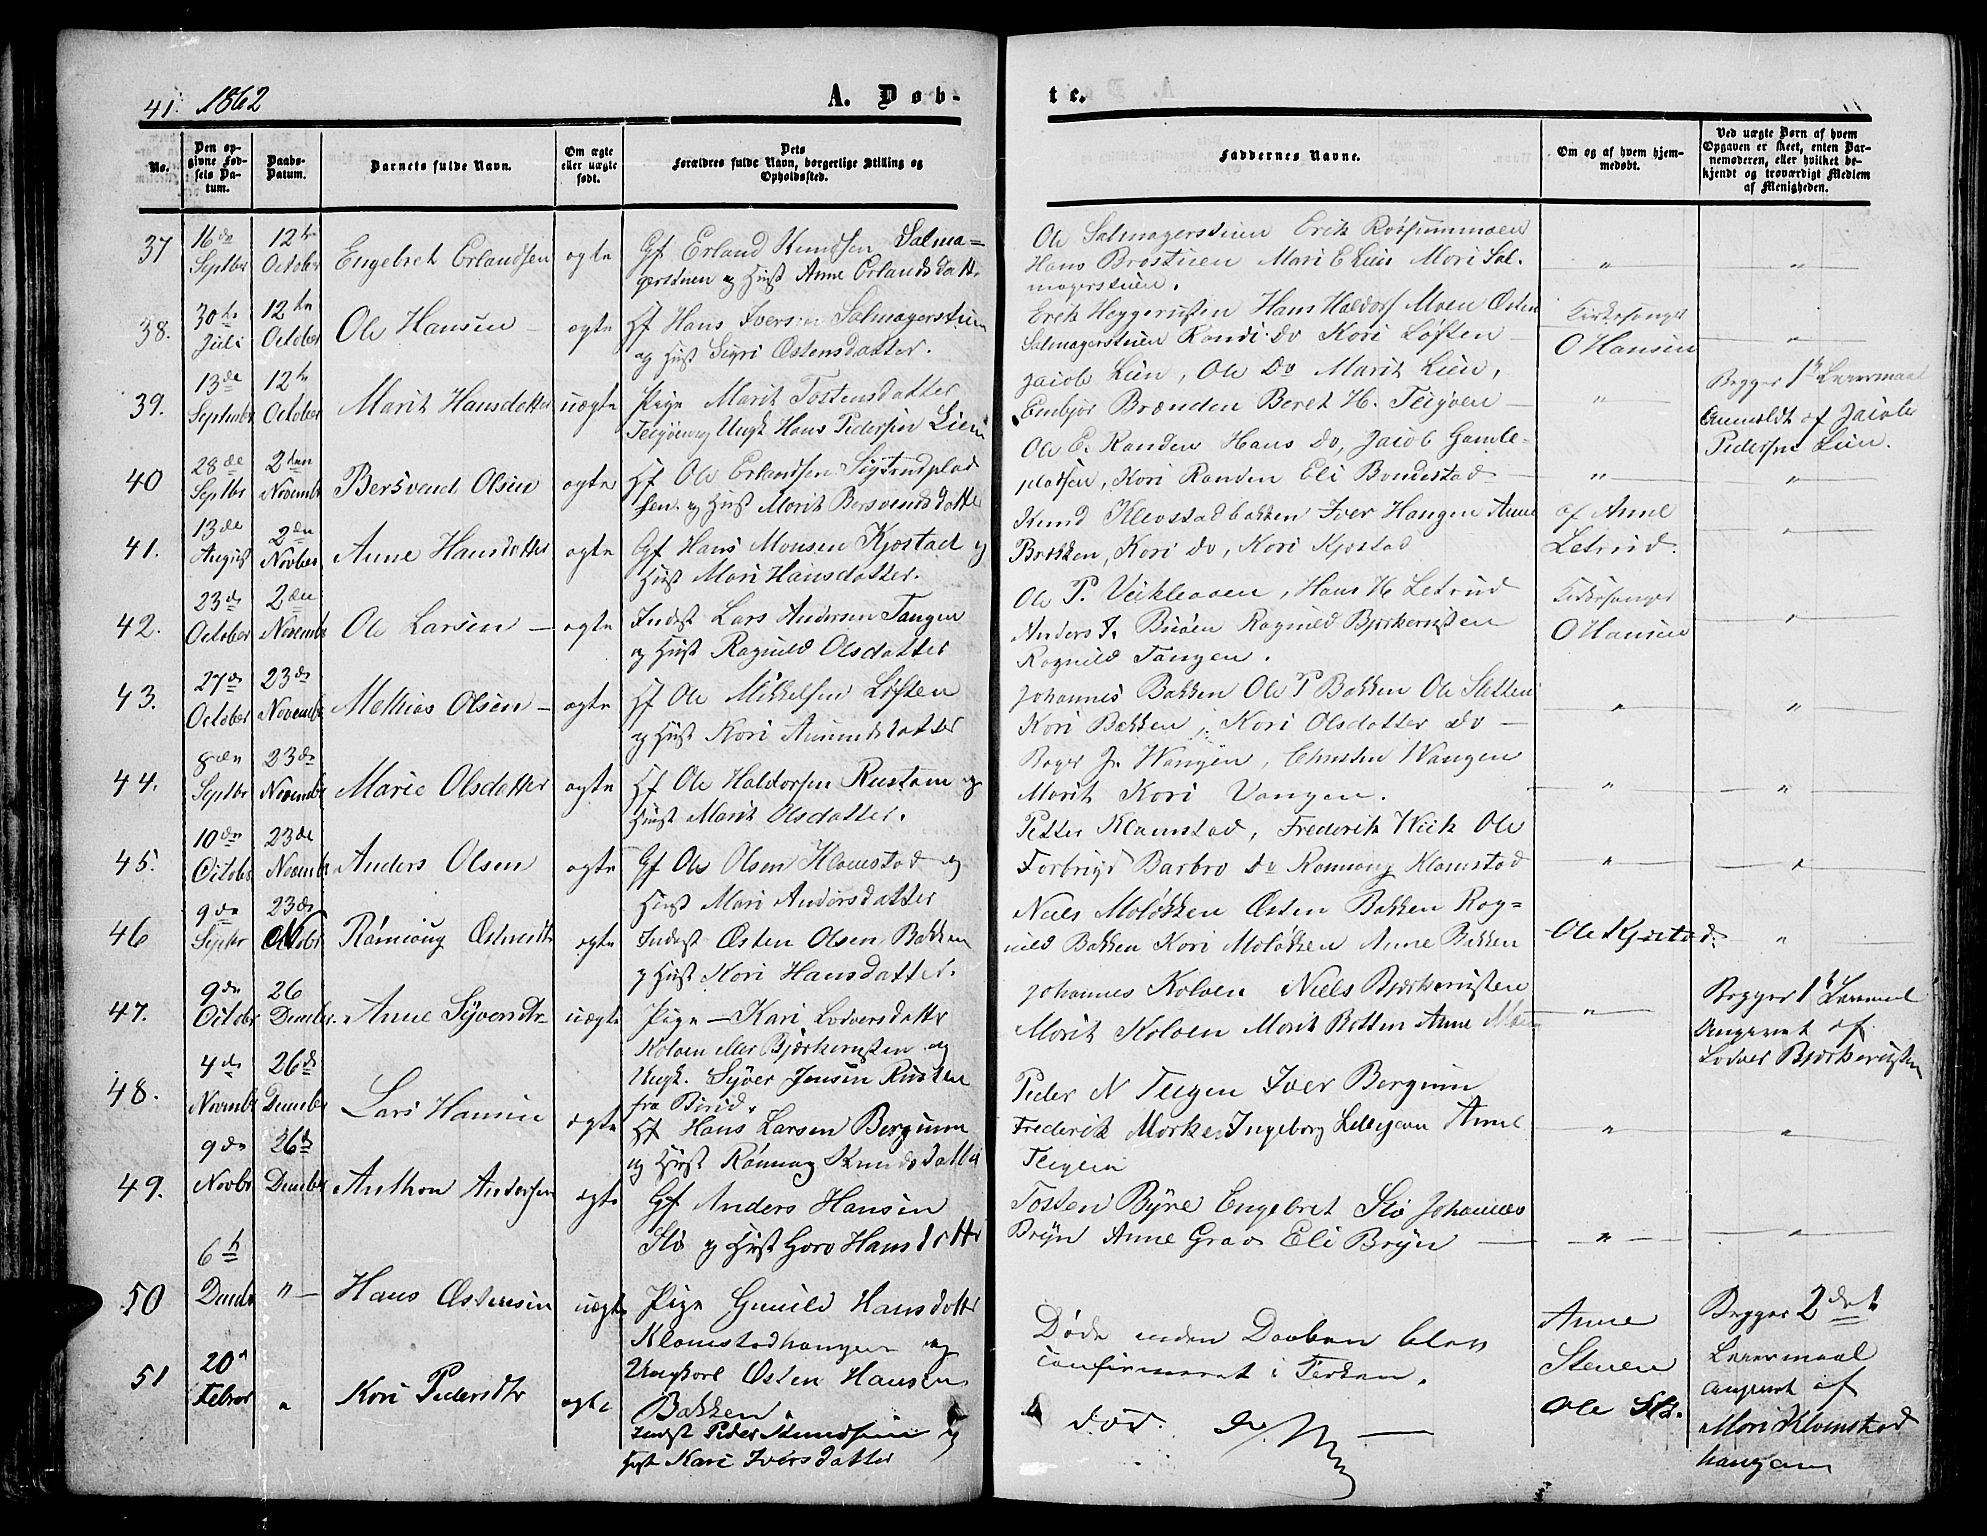 41. 1862 A. Døb-
te.
No.
Den op-
givne Fød-
sels Da-
tum.
Daabs-
Datum.
Barnets fulde Navn.
Om ægte
eller uægte
født.
Dets
Forældres fulde Navn, borgerlige Stilling og
Opholdssted.
Faddernes Navne.
Om og af hvem hjem-
medøbt.
Ved uægte Børn af hvem
Opgaven er skeet, enten Bar-
nemoderen, eller hvilket be-
kjendt og troværdigt Medlem
af Menigheden.
37 16de Septbr 12te October Engebret Erlandsen ægte
Gf Erland Knudsen Salma-
gerstuen og Hust Anne Erlandsdatt.
Ole Salmagerstuen Erik
Hans Brostuen Mari E Lien Mari Sal-
magerstuen.
" "
38. 30te Juli 12te October Ole Hansen - ægte
Hf Hans Iversen Salmagerstuen
og Hust Sigri Østensdatter.
Erik Heggerusten Hans Haldors Moen Østen
Salmagerstuen Randi Do Kari Løften
Kirkesanger
O Hansen
"
39. 13de Septembr 12te October Marit Hansdatter uægte
Pige Marit Tostensdatter
Teigøen og Ungk Hans Pedersen Lien
Jacob Lien, Ole Do Marit Lien,
Embjør Brænden Beret H. Teigøen
"
Begges 1te Leiermaal
Anmeldt af Jacob
Pedersen Lien.
40 28de Septbr 2den Novembr Bersvend Olsen ægte
Hf Ole Erlandsen Sigstadplad
sen. og Hust Marit Bersvendsdatter
Ole E. Randen Hans Do, Jacob Gamle-
pladsen, Kari Randen Eli Bondestad
" "
41. 13de August 2den Novbr Anne Hansdatter ægte
Gf Hans Monsen Kjøstad og
Hust Mari Hansdatter.
Knud Klevstadbakken Iver Haugen Anne
Bakken, Kari Do, Kari Kjøstad
af Anne
Letrud.
"
42. 23de October 2den Novembr Ole Larsen - ægte
Inderst Lars Andersen Tangen
og Hust Ragnild Olsdatter
Ole P. Veikleaaen, Hans H. Letrud
Anders I. Buøen Ragnild Bjørkerusten
Ragnild Tangen.
Kirkesanger
O Hansen
"
43. 27de October 23de Novembr Mathias Olsen - ægte
Hf Ole Mikkelsen Løften
og Hust Kari Amundsdatter
Johannes Bakken Ole P Bakken Ole Sletten
Kari Bakken, Kari Olsdatter Do -
" "
44. 8de Septbr 23de Novembr Marie Olsdatter ægte
Hf Ole Haldorsen Rustom og
Hust Marit Olsdatter.
Roger J. Vangen, Christen Vangen
Marit Kari Vangen.
" "
45. 10de Octobr 23de Novembr Anders Olsen ægte
Gf Ole Olsen Klomstad og
Hust Mari Andersdatter
Petter Klomstad, Frederik Wiik Ole
Forbrigd Barbro Do Rønnaug Klomstad
" "
46 9de Septbr 23de Rønnaug Østensdtr ægte
Inderst Østen Olsen Bakken
og Hust Kari Hansdatter.
Niels Moløkken Østen Bakken Rag-
nild Bakken Kari Moløkken Anne Bakken
Ole Kjøstad.
"
47. 9de Octobr 26 Decembr. Anne Syversdtr uægte
Pige - Kari Lodversdattr
Kolven eller Bjørkerusten og
Ungk. Syver Jensen Rusten
fra Birid.
Johannes Kolven Niels Bjørkerusten
Marit Kolven Marit Botten Anne Moen
"
Begges 1te Leiermaal
Angivet af
Lodver Bjørkerusten
48. 4de Novembr 26de Decembr Lars Hansen ægte
Hf Hans Larsen Bergum
og Hust Rønnaug Knudsdatter
Peder N Teigen Iver Bergum
Frederik Mørke Ingeborg Lillejaen Anne
Teigen
" "
49. 9de Novbr 26de Decembr Anthon Andersen ægte
Gf Anders Hansen
Slo og Hust Goro Hansdattr
Tosten Byre Engebret Slo Johannes
Bryn Anne Grav Eli Bryn
" "
50 6te Decembr " Hans Østensen uægte
Pige Gunild Hansdattr
Klomstadhaugen og
Ungkarl Østen Hansen
Bakken.
Døde inden Daaben blev
confirmeret i Kirken.
Anne
Steien
Begges 2det
Leiermaal
Angivet af
Mari Klomstad
haugen
51 20de Febror " Kari Pedersdtr ægte
Inderst Peder Knudsen og
Hust Kari Iversdatter
Død. Do
Ole Slo.